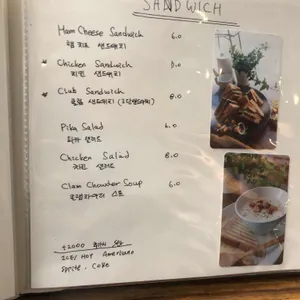 SANDWICH
Ham Cheese Sandwich 6.0
햄 치즈 샌드위치
Chicken Sandwich
치킨 샌드위치
Club Sandwich 8.0
클럽 샌드위치
Salad 6.0
Chicken Salad 8.0
치킨 샐러드
Clam Chowder Soup 6.0
클램차우더 스프
+2000
ICE/HOT Americano
Sprite, COKE